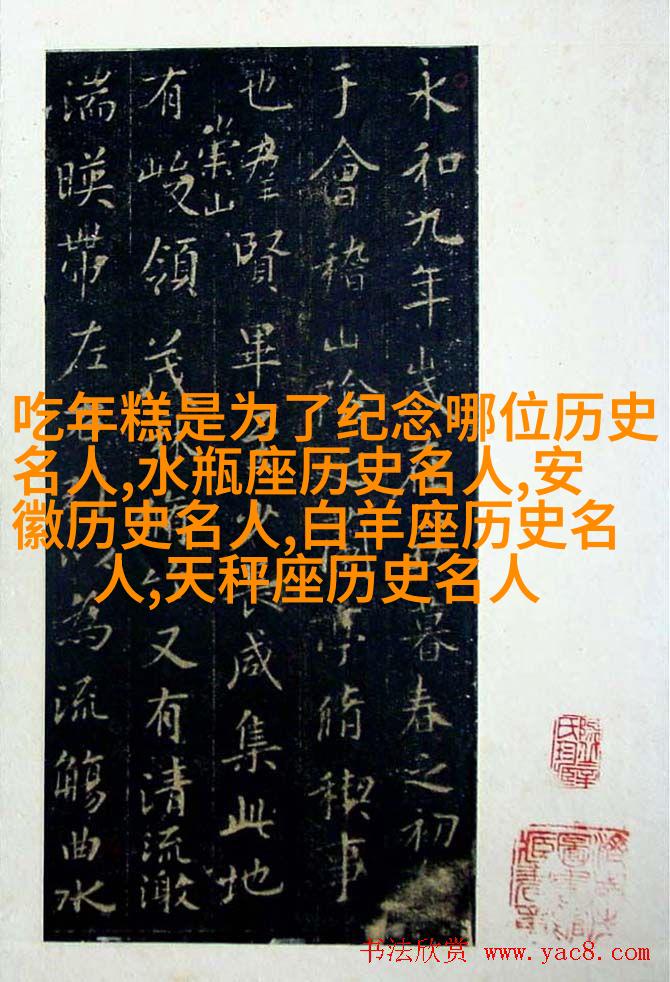 永和九年歲在暮春之初
于會稽山陰亭脩禊事
也羣賢畢至少長咸集此地
有崇山峻領茂林又有清流激
湍暎帶左為流觴曲水
吃年糕是为了纪念哪位历史
名人,水瓶座历史名人,安
徽历史名人,白羊座历史名
人,天秤座历史名人
书法欣赏 www.yac8.com